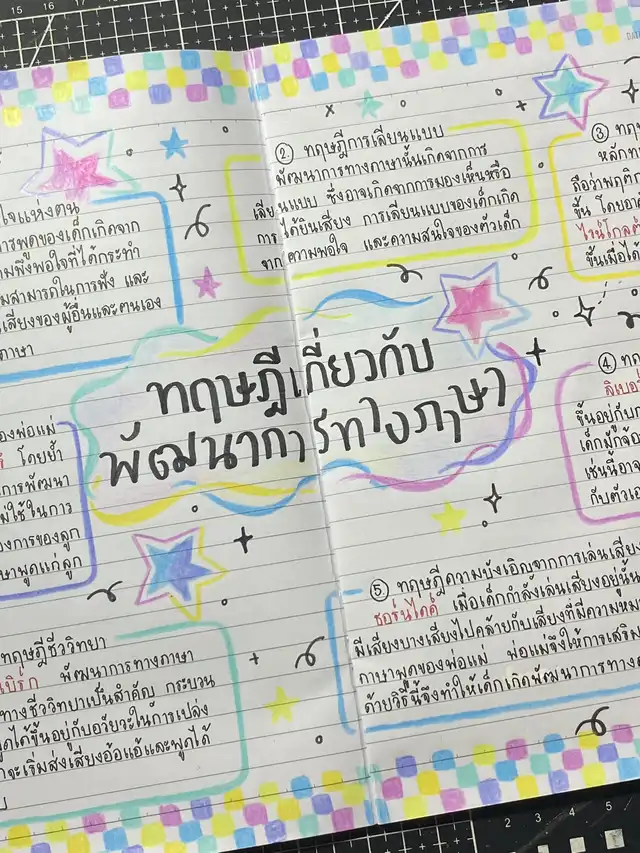 ทฤษฎีเกี่ยวกับ
พัฒนาการทางภาษา
ใจแห่งตน
การพูดของเด็กเกิดจาก
ามพึงพอใจที่ได้กระทำ
มสามารถในการฟัง และ
เสียงของผู้อื่นและตนเอง
ภาษา
② ทฤษฎีการเลียนแบบ
พัฒนาการทางภาษานั้นเกิดจากการ
เลียนแบบ ซึ่งอาจเกิดจากการมองเห็นหรือ
การได้ยินเสียง การเลียนแบบของเด็กเกิด
จากความพอใจ และความสนใจของตัวเด็ก
③ ทฤ
หลักท
ถือว่าพฤติก
ขึ้น โดยอา
ไรน์โกลด์
ขึ้นเมื่อได้
④ ทฤ
ลิเบอ
ขึ้นอยู่กับ
เด็กมักจ้อ
เช่นนี้อา
กับตัวเอ
องพ่อแม่
โดยย้ำ
การพัฒนา
ม่ใช้ในการ
องการของลูก
าษาพูดแก่ลูก
⑤ ทฤษฎีความบังเอิญจากการเล่นเสียง
ธอร์นไดค์ เมื่อเด็กกำลังเล่นเสียงอยู่นั้น
มีเสียงบางเสียงไปคล้ายกับเสียงที่มีความหม
ภาษาพูดของพ่อแม่ พ่อแม่จึงให้การเสริม
ด้วยวิธีนี้จึงทำให้เด็กเกิดพัฒนาการทาง
ทฤษฎีชีววิทยา
เบิร์ก พัฒนาการทางภาษา
ทางชีววิทยาเป็นสำคัญ กระบวน
พูดได้ขึ้นอยู่กับอวัยวะในการเปล่ง
าจะเริ่มส่งเสียงอ้อแอ้และพูดได้
บ
15 16 17
2 3 4 5